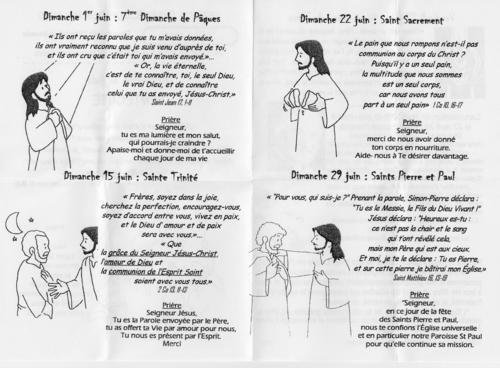 Dimanche 1er juin : 7ème Dimanche de Pâques
« Ils ont reçu les paroles que tu m'avais données,
ils ont vraiment reconnu que je suis venu d'auprès de toi,
et ils ont cru que c'était toi qui m'avais envoyé.»...
« Or, la vie éternelle,
c'est de te connaître, toi, le seul Dieu,
le vrai Dieu, et de connaître
celui que tu as envoyé, Jésus-Christ.»
Saint Jean 17, 1-11
Prière
Seigneur,
tu es ma lumière et mon salut,
qui pourrais-je craindre ?
Apaise-moi et donne-moi de t'accueillir
chaque jour de ma vie
Dimanche 22 juin : Saint Sacrement
« Le pain que nous rompons n'est-il pas
communion au corps du Christ ?
Puisqu'il y a un seul pain,
la multitude que nous sommes
est un seul corps,
car nous avons tous
part à un seul pain» 1 Co 10, 16-17
Prière
Seigneur,
merci de nous avoir donné
ton corps en nourriture.
Aide- nous à Te désirer davantage.
Dimanche 15 juin : Sainte Trinité
« Frères, soyez dans la joie,
cherchez la perfection, encouragez-vous,
soyez d'accord entre vous, vivez en paix,
et le Dieu d'amour et de paix
sera avec vous.»...
« Que
la grâce du Seigneur Jésus-Christ,
l'amour de Dieu et
la communion de l'Esprit Saint
soient avec vous tous.»
2 Co 13, 11-13
Prière
Seigneur Jésus,
Tu es la Parole envoyée par le Père,
tu as offert ta Vie par amour pour nous,
Tu nous es présent par l'Esprit.
Merci
Dimanche 29 juin : Saints Pierre et Paul
« "Pour vous, qui suis-je ?" Prenant la parole, Simon-Pierre déclara :
"Tu es le Messie, le Fils du Dieu Vivant !"
Jésus déclara : "Heureux es-tu :
ce n'est pas la chair et le sang
qui t'ont révélé cela,
mais mon Père qui est aux cieux.
Et moi, je te le déclare : Tu es Pierre,
et sur cette pierre je bâtirai mon Église.»
Saint Matthieu 16, 13-19
Prière
"Seigneur,
en ce jour de la fête
des Saints Pierre et Paul,
nous te confions l'Église universelle
et en particulier notre Paroisse St Paul
pour qu'elle continue sa mission.